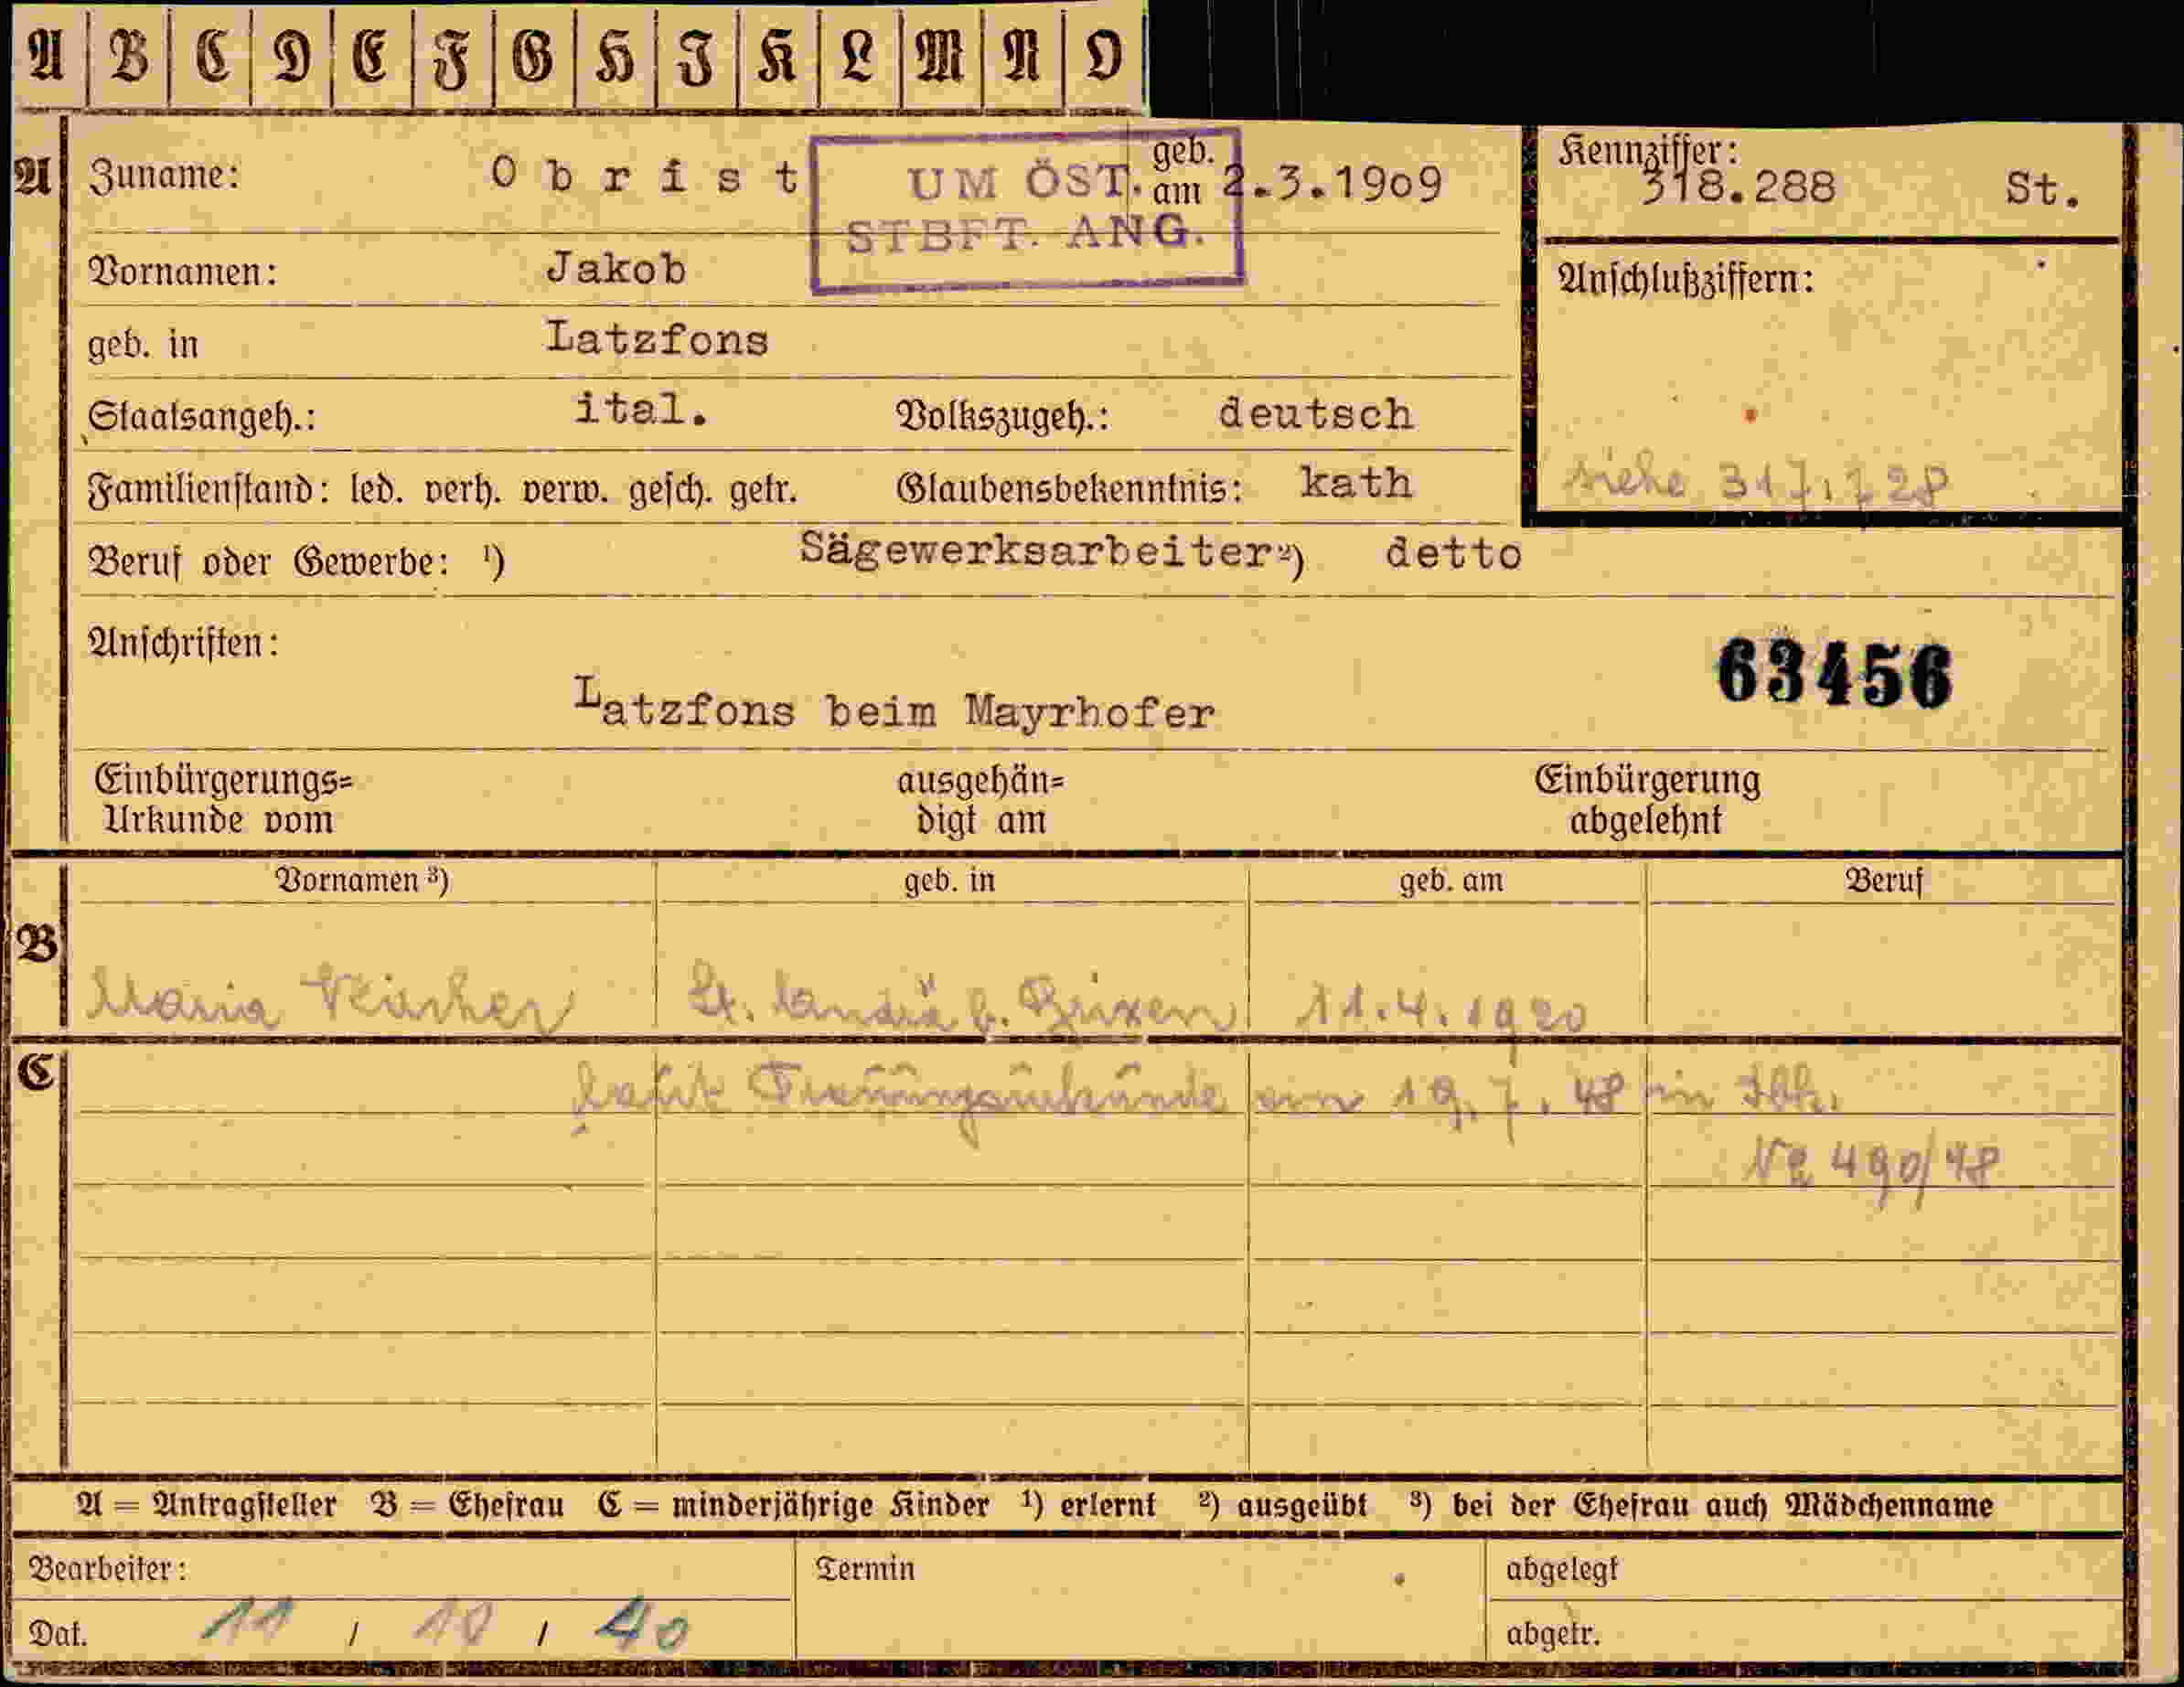 A B C D E F G H I K L M N O
A Zuname: Obrist geb. am 2.3.1909
UM ÖST.
STBFT. ANG.
Kennziffer: 318.288 St.
Vornamen: Jakob
Anschlußziffern:
geb. in Latzfons
Staatsangeh.: ital. Volkszugeh.: deutsch
Familienstand: led. verh. verw. gesch. getr. Glaubensbekenntnis: kath
siehe 317.728
Beruf oder Gewerbe: ¹) Sägewerksarbeiter ²) detto
Anschriften:
63456
Latzfons beim Mayrhofer
Einbürgerungs= ausgehän= Einbürgerung
Urkunde vom digt am abgelehnt
Vornamen ³) geb. in geb. am Beruf
B
Maria St. Andrä b. Brixen 11.4.1920
C
Trauungsurkunde am 19.7.48 in Ibk.
490/48
A = Antragsteller B = Ehefrau C = minderjährige Kinder ¹) erlernt ²) ausgeübt ³) bei der Ehefrau auch Mädchenname
Bearbeiter: Termin abgelegt
Dat. 11 / 10 / 40 abgetr.